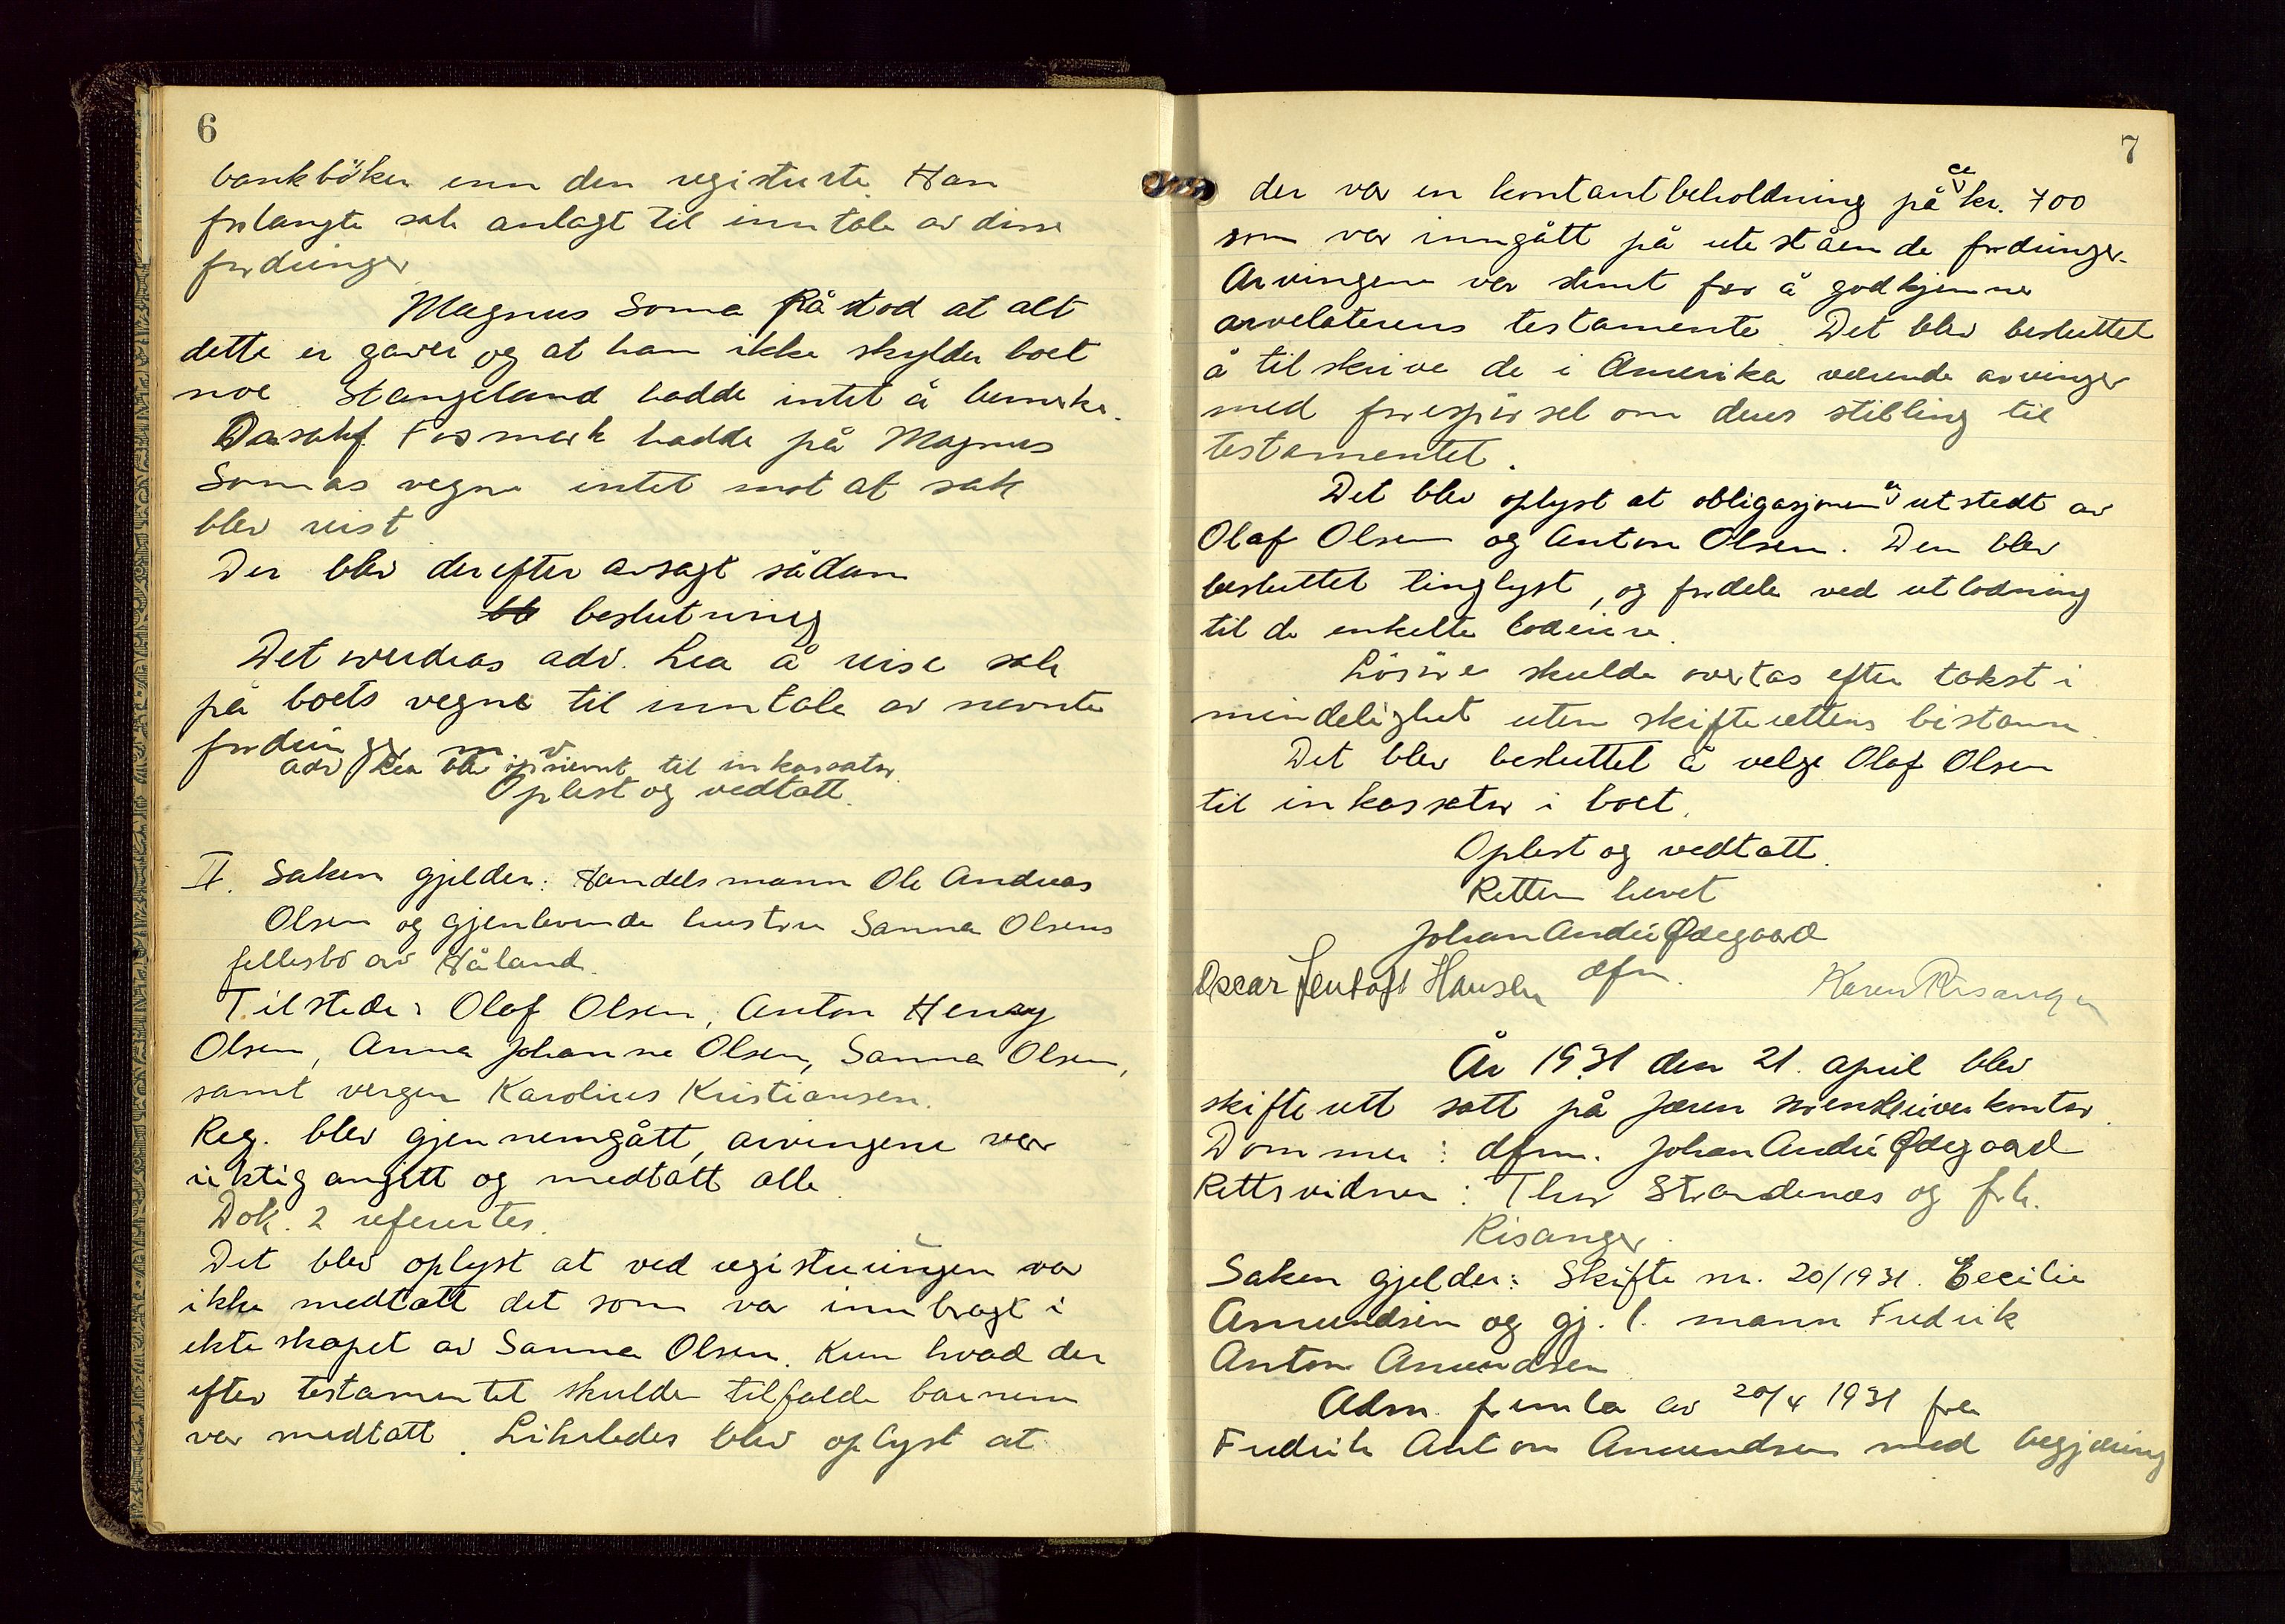 6
bankbøker enn den registrerte. Han
forlangte sak anlagt til inntale av disse
fordringer
Magnus Soma påstod at alt
dette er gaver og at han ikke skylder boet
noe. Stangeland hadde intet å bemerke.
Fosmark hadde på Magnus
Somas vegne intet mot at sak
blev reist
Der blev derefter avsagt sådan
beslutning
Det overdras adv. Lea å reise sak
på boets vegne til inntale av nevnte
fordringer m. v.
adv Lea blev opnevnt til inkassator.
Oplest og vedtatt.
II. Saken gjelder: Handelsmann Ole Andreas
Olsen og gjenlevende hustru Sanna Olsens
fellesbo av Håland.
Tilstede: Olaf Olsen, Anton Henry
Olsen, Anna Johanne Olsen, Sanna Olsen,
samt vergen Karolius Kristiansen.
Reg. blev gjennemgått, arvingene var
riktig angitt og medtatt alle
Dok. 2 refertes.
Det blev oplyst at ved registreringen var
ikke medtatt det som var innbragt i
ekteskapet av Sanna Olsen. Kun hvad der
efter testamentet skulde tilfalde barnem
var medtatt. Likeledes blev oplyst at
7
der var en kontantbeholdning på ca kr. 700
som var inngått på utestående fordringer.
Arvingene var stemt for å godkjenne
arvelaterens testamente. Det blev besluttet
å tilskrive de i Amerika værende arvinger
med forespørsel om deres stilling til
testamentet.
Det blev oplyst at obligasjonen er utstedt av
Olaf Olsen og Anton Olsen. Den blev
besluttet tinglyst, og fordele ved utlodning
til de enkelte lodeiere.
Løsøre skulde overtas efter takst i
mindelighet uten skifterettens bistann.
Det blev besluttet å velge Olaf Olsen
til inkassator i boet.
Oplest og vedtatt.
Retten hevet
Johan André Ødegaard
dfm.
Oscar Jentoft Hansen
Karen Risanger
År 1931 den 21. april blev
skifterett satt på Jæren sorenskriverkontor.
Dommer: dfm. Johan André Ødegaard
Rettsvidner: Thor Strandenæs og frk.
Risanger.
Saken gjelder: Skifte nr. 20/1931. Cecilie
Amundsen og gj. l. mann Fredrik
Anton Amundsen
Adm. fremla av 20/4 1931 fra
Fredrik Anton Amundsen med begjæring